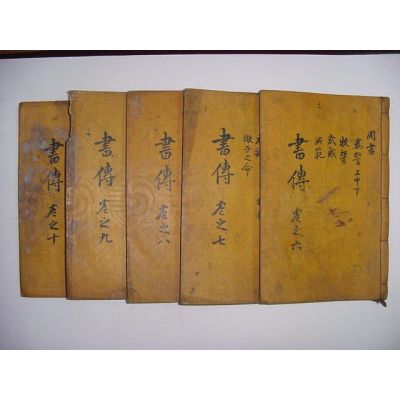 周書
泰誓上中下
牧誓
武成
洪範
書傳 卷之六
微子之命
書傳 卷之七
書傳 卷之八
書傳 卷之九
書傳 卷之十